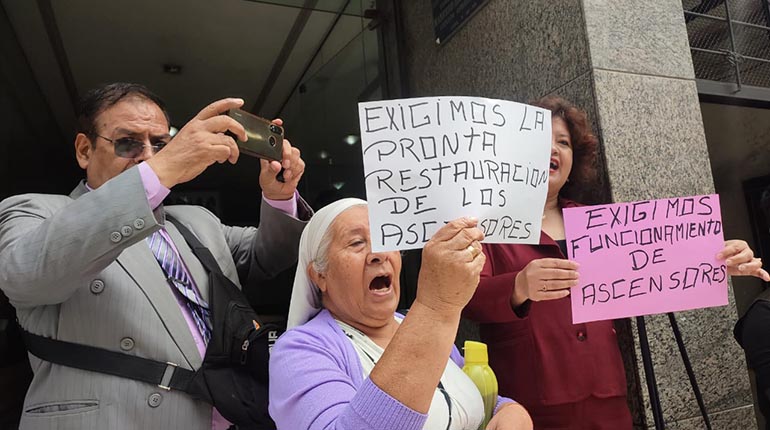 EXIGIMOS LA
PRONTA
RESTAURACION
DE LOS
ASCENSORES
EXIGIMOS
FUNCIONAMIENTO
DE
ASCENSORES